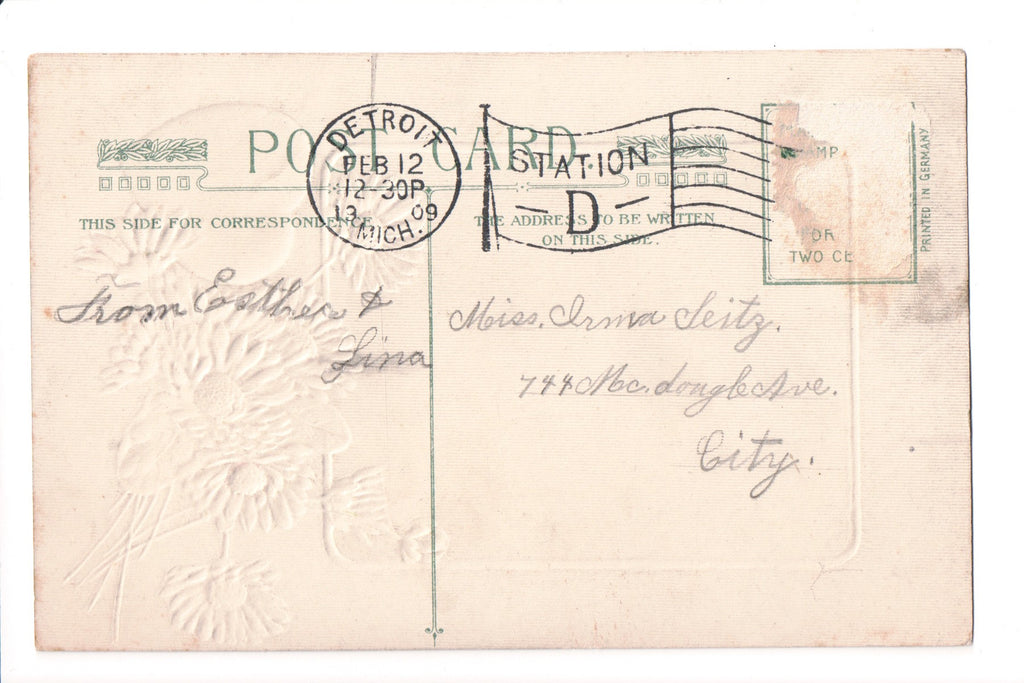 POST CARD
DETROIT
FEB 12
12-30P
13 09
MICH.
STATION
D
THIS SIDE FOR CORRESPONDENCE
THE ADDRESS TO BE WRITTEN
ON THIS SIDE.
AMP
OR
TWO CE
PRINTED IN GERMANY
From Esther &
Lina
Miss. Irma Seitz.
744 Mc.dougle Ave.
City.